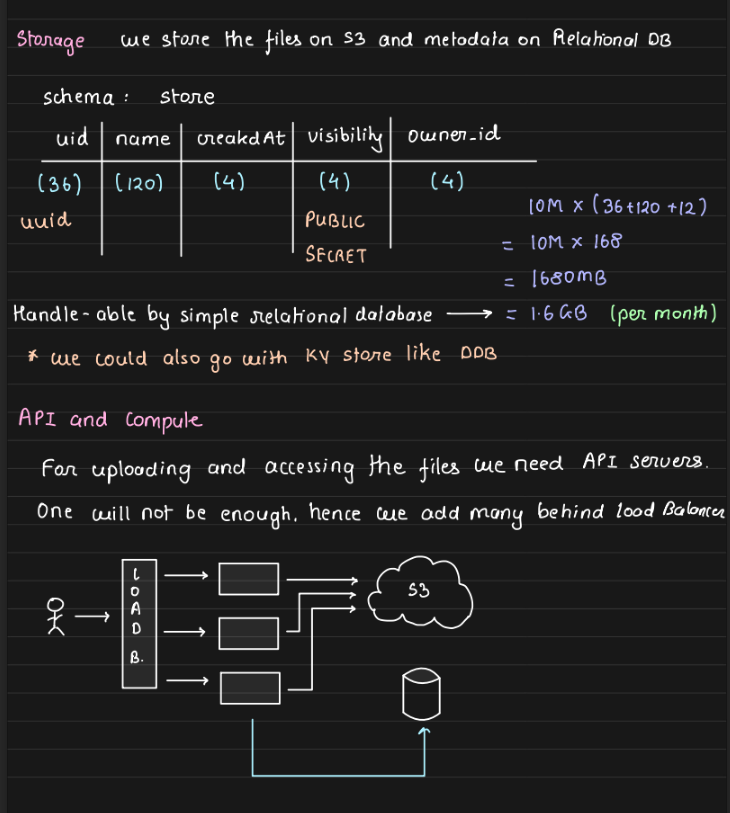 Storage we store the files on S3 and metadata on Relational DB
schema : store
uid name createdAt visibility owner_id
(36) (120) (4) (4) (4)
uuid
PUBLIC
SECRET
10M x (36+120+12)
= 10M x 168
= 1680MB
Handle-able by simple relational database → = 1.6GB (per month)
* we could also go with KV store like DDB
API and Compute
For uploading and accessing the files we need API servers.
One will not be enough, hence we add many behind load Balancer
LOAD B.
S3